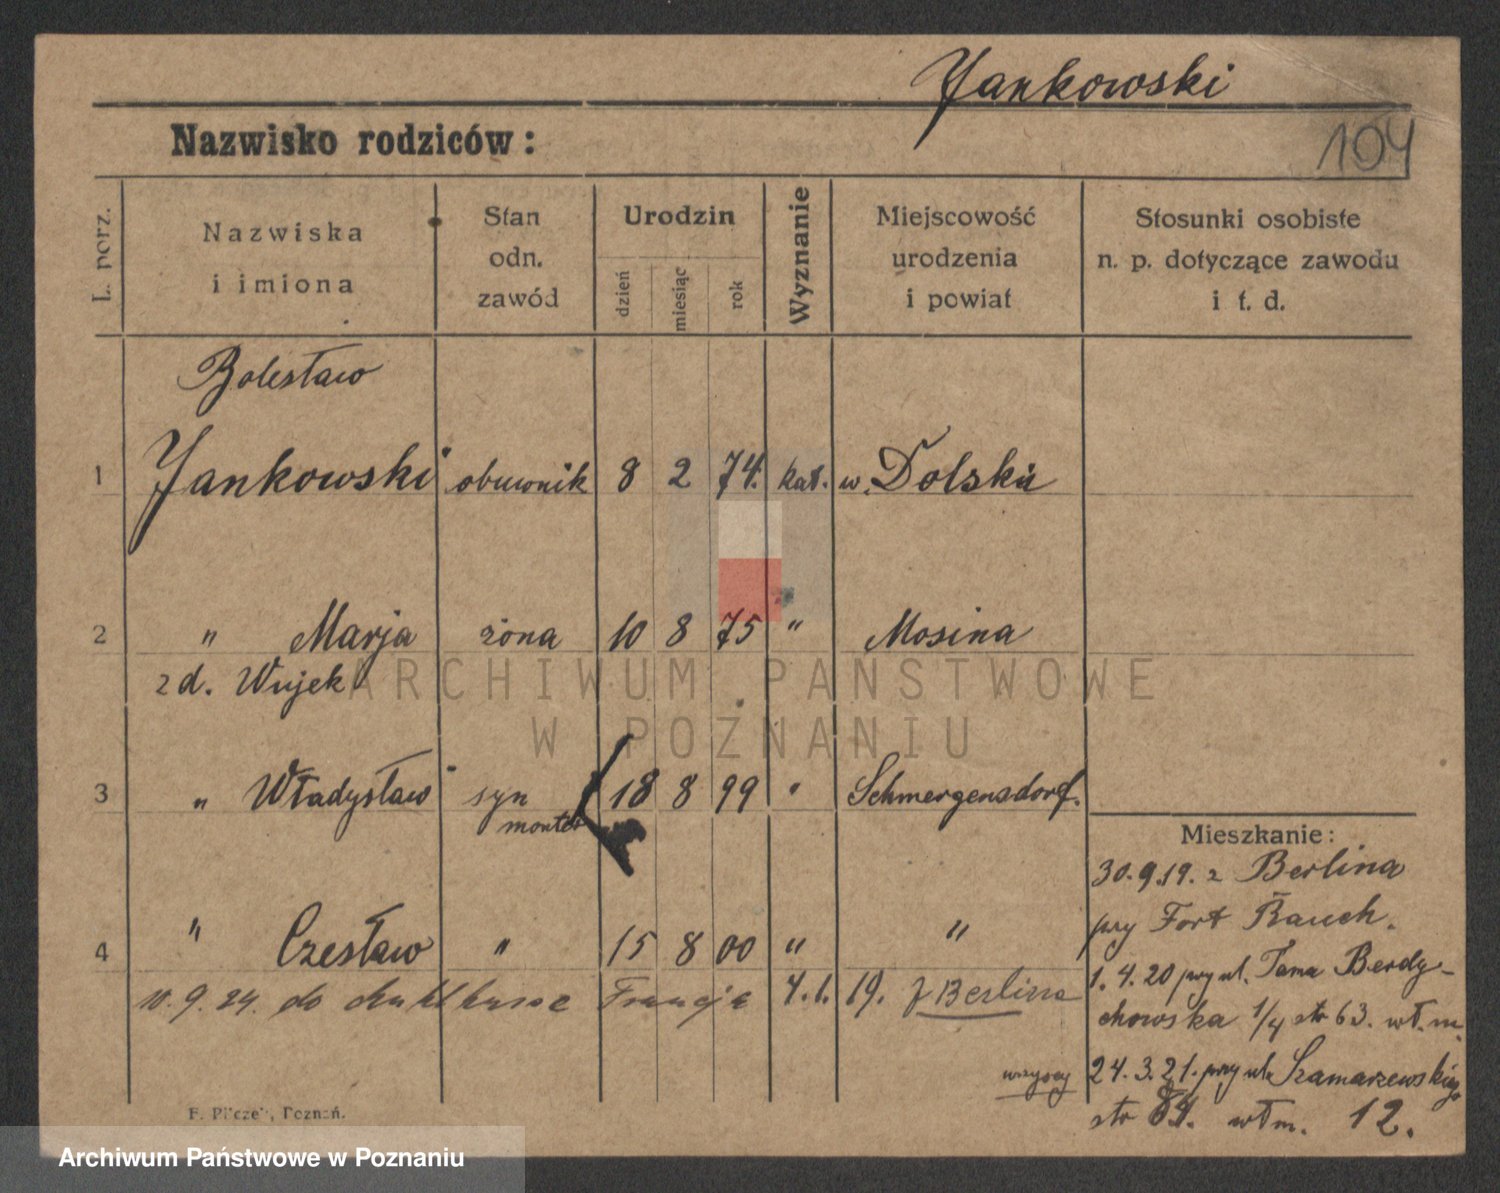 Jankowski
Nazwisko rodziców:
104
L. porz.
Nazwiska
i imiona
Stan
odn.
zawód
Urodzin
dzień
miesiąc
rok
Wyznanie
Miejscowość
urodzenia
i powiat
Stosunki osobiste
n. p. dotyczące zawodu
i t. d.
Bolesław
1 Jankowski obuwnik 8 2 74. kat. w. Dolsku
2 " Marja żona 10 8 75 " Mosina
z d. Wujek
ARCHIWUM PAŃSTWOWE
W POZNANIU
3 " Władysław syn 18 8 99 " Schmergensdorf.
monter
Mieszkanie:
30.9.19. z Berlina
przy Fort Rauch.
4 " Czesław " 15 8 00 " "
1. 4. 20 przy ul. Tama Berdy-
chowska 1/4 str 63. wł. m.
10. 9. 24. do Francje 4. 1. 19. z Berlina
wszyscy 24. 3. 21. przy ul. Szamarzewskiego
str 84. włm. 12.
F. Pilczek, Poznań.
Archiwum Państwowe w Poznaniu